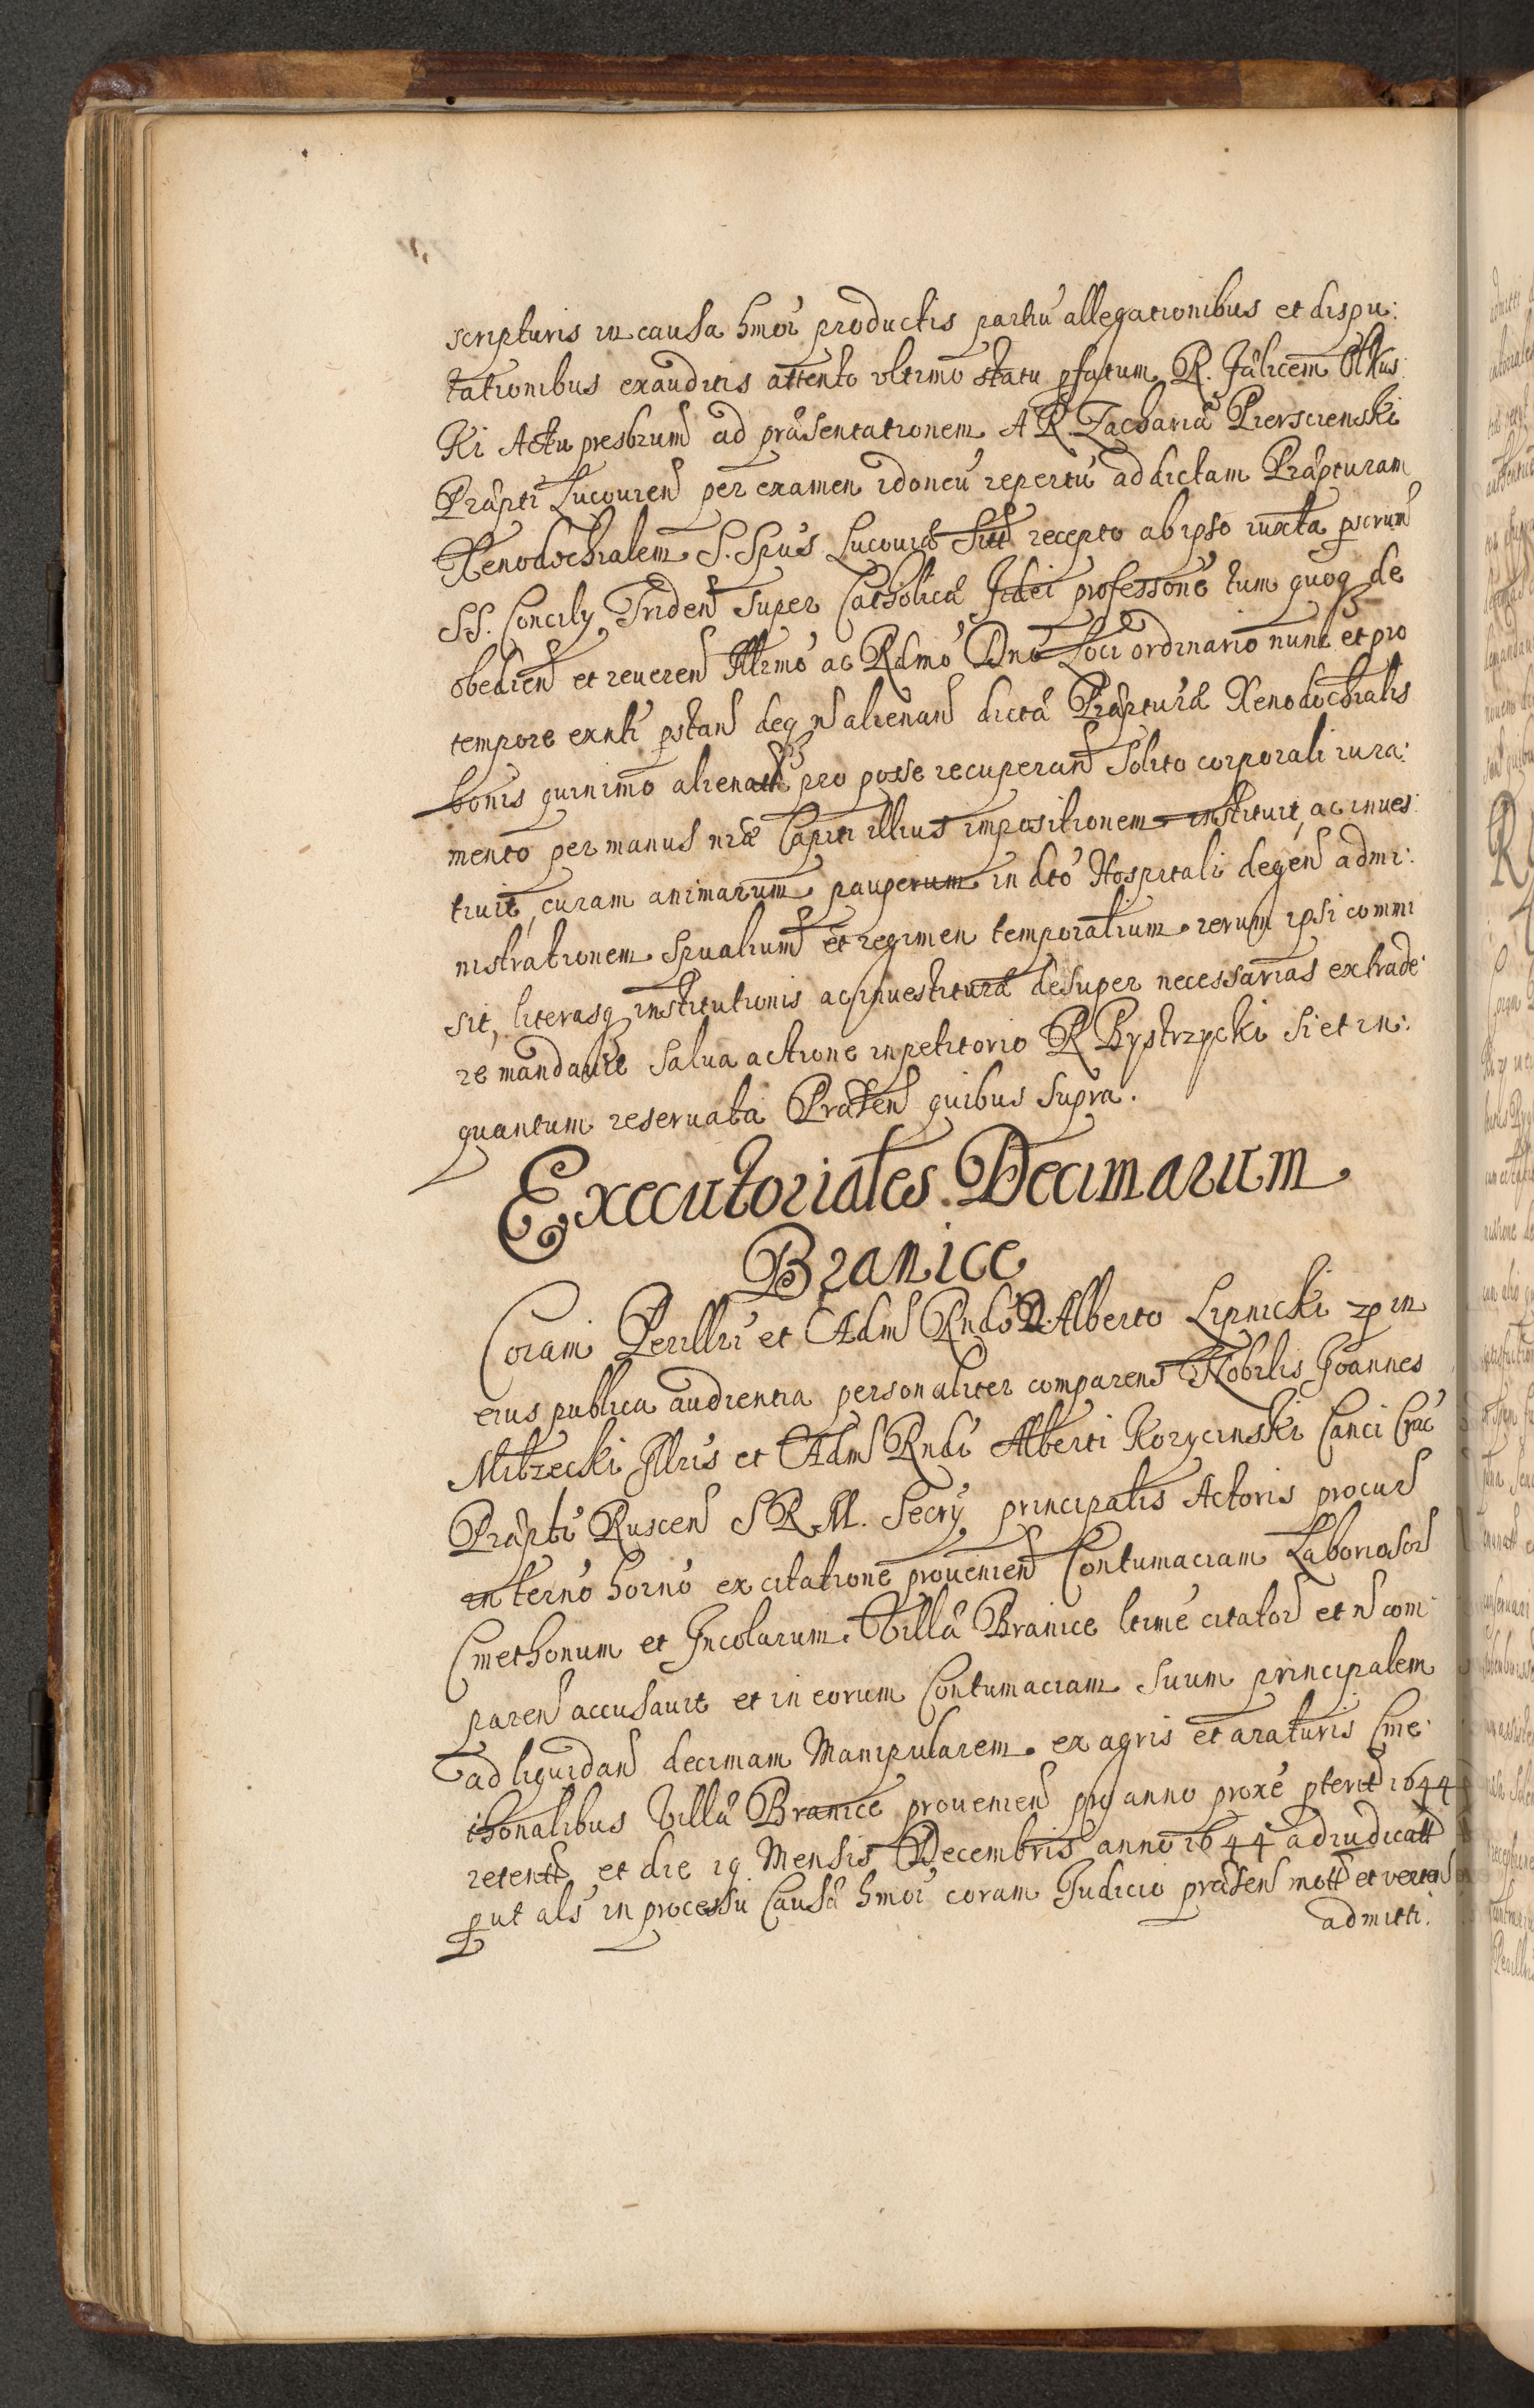 scripturis in causa hmoi productis partiu allegationibus et dispu:
tationibus exauditis attento vltimo statu pfatum R. Fælicem Olkus:
ki Actu presbrum ad præsentationem A R Zacharia Pierscienski
Præpti Lucouien per examen idoneu repertu ad dictam Præpturam
Xenodochialem S. Spus Lucouiæ recepto ab ipso iuxta pscrum
SS. Concily Triden super Catholica Fidei professione tum quoq de
obedien et reueren Illrmo ac Rdmo Dno Loci ordinario nunc et pro
tempore exnti pstan deq n alienan dictæ Præpturæ Xenodochialis
bonis quinimo alienatt pro posse recuperan solito corporali iura:
mento per manus nræ Capiti illius impositionem instituit, ac inues:
tiuit, curam animarum pauperum in dto Hospitali degen admi:
nistrationem spualium et regimen temporalium rerum ipsi commi
sit, literasq institutionis ac inuestituræ desuper necessarias extrade:
re mandauit salua actione in petitorio R Bystrzycki si et in:
quantum reseruata Præsen quibus supra.
Executoriales Decimarum
Branice
Coram Perillri et Adm Rndo D. Alberto Lipnicki zp in
eius publica audientia personaliter comparens Nobilis Joannes
Milzecki Illris et Adm Rndi Alberti Korycinski Canci Crac
Præpti Ruscen S R M. Secry principalis Actoris procur
in terno horno ex citatione prouenien Contumaciam Laboriosor
Cmethonum et Incolarum Villæ Branice ltime citator et n com:
paren accusauit et in eorum Contumaciam suum principalem
ad liquidan decimam Manipularem ex agris et araturis Cme:
thonalibus Villæ Branice prouenien pro anno proxe pterit 1644
retentt et die 19 Mensis Decembris anno 1644 adiudicatt
put als in processu Causæ hmoi coram Judicio præsen mott et verten
admitti.